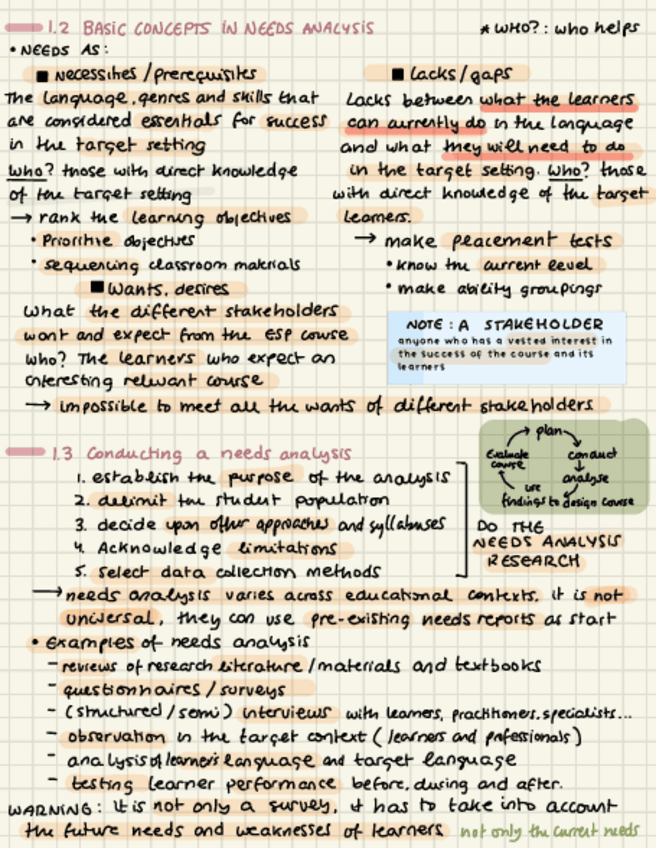 1.2 BASIC CONCEPTS IN NEEDS ANALYSIS
* WHO?: who helps
• NEEDS AS:
■ necessities/prerequisites
The language, genres and skills that
are considered essentials for success
in the target setting
Who? those with direct knowledge
of the target setting
→ rank the learning objectives
• Prioritive objectives
• sequencing classroom materials
■ Lacks/gaps
Lacks between what the learners
can currently do in the language
and what they will need to do
in the target setting. Who? those
with direct knowledge of the target
learners.
→ make peacement tests
• know the current level
• make ability groupings
■ Wants, desires
What the different stakeholders
want and expect from the ESP course
who? The learners who expect an
interesting relevant course
→ impossible to meet all the wants of different stakeholders
NOTE: A STAKEHOLDER
anyone who has a vested interest in
the success of the course and its
learners
1.3 Conducting a needs analysis
1. establish the purpose of the analysis
2. delimit the student population
3. decide upon other approaches and syllabuses
4. Acknowledge limitations
5. Select data collection methods
DO THE
NEEDS ANALYSIS
RESEARCH
plan
conduct
analyse
use
findings to design course
Evaluate
course
→ needs analysis varies across educational contexts, it is not
universal, they can use pre-existing needs reports as start
• Examples of needs analysis
- reviews of research literature/materials and textbooks
- questionnaires/surveys
- (structured/semi) interviews with learners, practitioners, specialists...
- observation in the target context (learners and professionals)
- analysis of learners language and target language
- testing learner performance before, during and after.
WARNING: it is not only a survey, it has to take into account
the future needs and weaknesses of learners not only the current needs